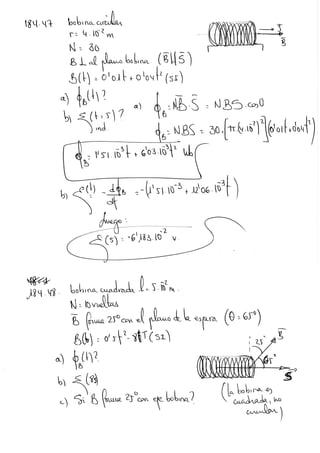 184.47 bobina circular
r = 4.10⁻² m
N = 30
B ⊥ al plano bobina (B̄ ∥ S̄)
B(t) = 0'01t + 0'04t² (SI)
a) ϕ_B(t)?
b) ξ_ind (t=5)?
S̄
B̄
a) ϕ_B = N B̄ · S̄ = NBS.cos0
ϕ_B = NBS = 30.[π(4.10⁻²)²][0'01t+0'04t²]
ϕ_B = 1'51.10⁻³t + 6'03.10⁻³t² Wb
b) ξ(t) = - dϕ_B/dt = -(1'51.10⁻³ + 12'06.10⁻³t)
luego:
ξ(5) = -6'183.10⁻² v.
184.48. bobina cuadrada l = 5.10⁻² m.
N = 10 vueltas
B̄ forma 25° con el plano de la espira (θ = 65°)
a) ϕ_B(t)?
b) ξ
c) Si B forma 25° con eje bobina?
B̄
25°
65°
S̄
(la bobina es
cuadrada, no
circular)